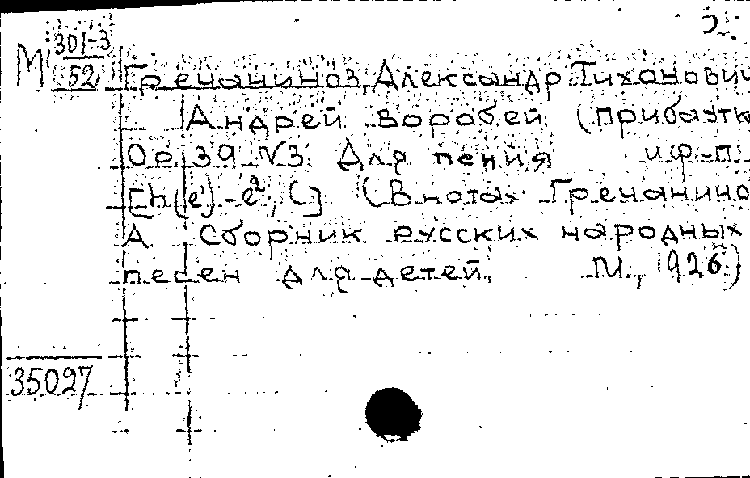 М 301-3
52
Гречанинов, Александр Тиханович
Андрей воробей (прибаутк
Ор. 39 №3. Для пения и ф-п
[h(e¹)-e², C] (В нотах Гречанино
А. Сборник русских народных
песен для детей. М., 1926.)
35027